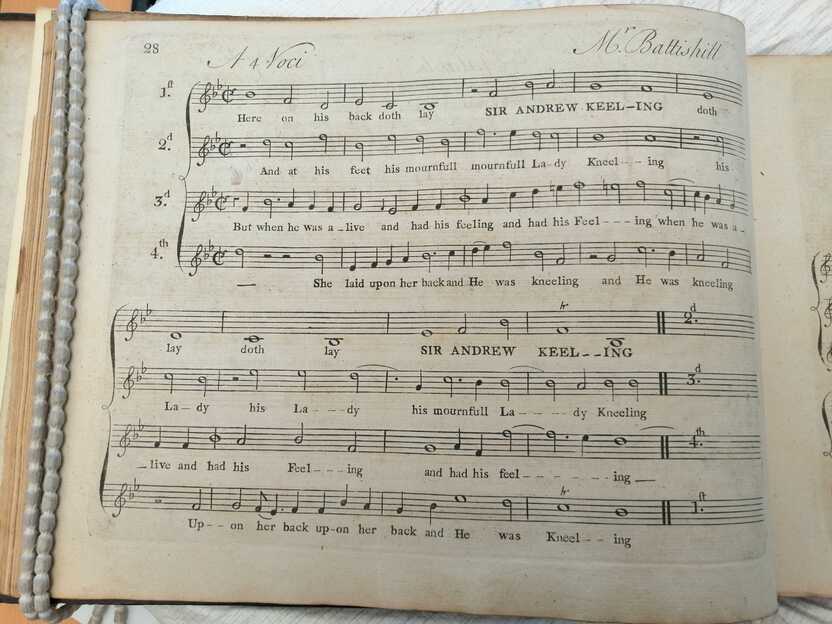 28
A 4 Voci
Mr. Battishill
1.st
Here on his back doth lay SIR ANDREW KEEL-ING doth
2.d
And at his feet his mournfull mournfull La-dy Kneel--ing his
3.d
But when he was a-live and had his feeling and had his Feel---ing when he was a-
4.th
She laid upon her back and He was kneeling and He was kneeling
lay doth lay SIR ANDREW KEEL--ING
2.d
La-dy his La---dy his mournfull La----dy Kneeling
3.d
-live and had his Feel---ing and had his feel------ing
4.th
Up--on her back up-on her back and He was Kneel--ing
1.st